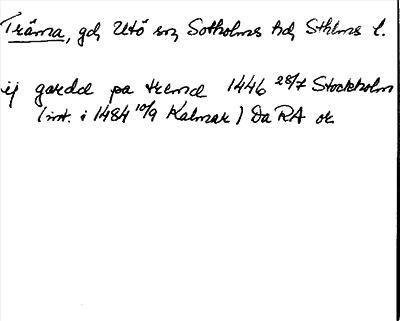 Träma, gd, Utö sn, Sotholms hd, Sthlms l.
ij garda pa trema 1446 28/7 Stockholm
(int. i 1484 10/9 Kalmar) Da RA or